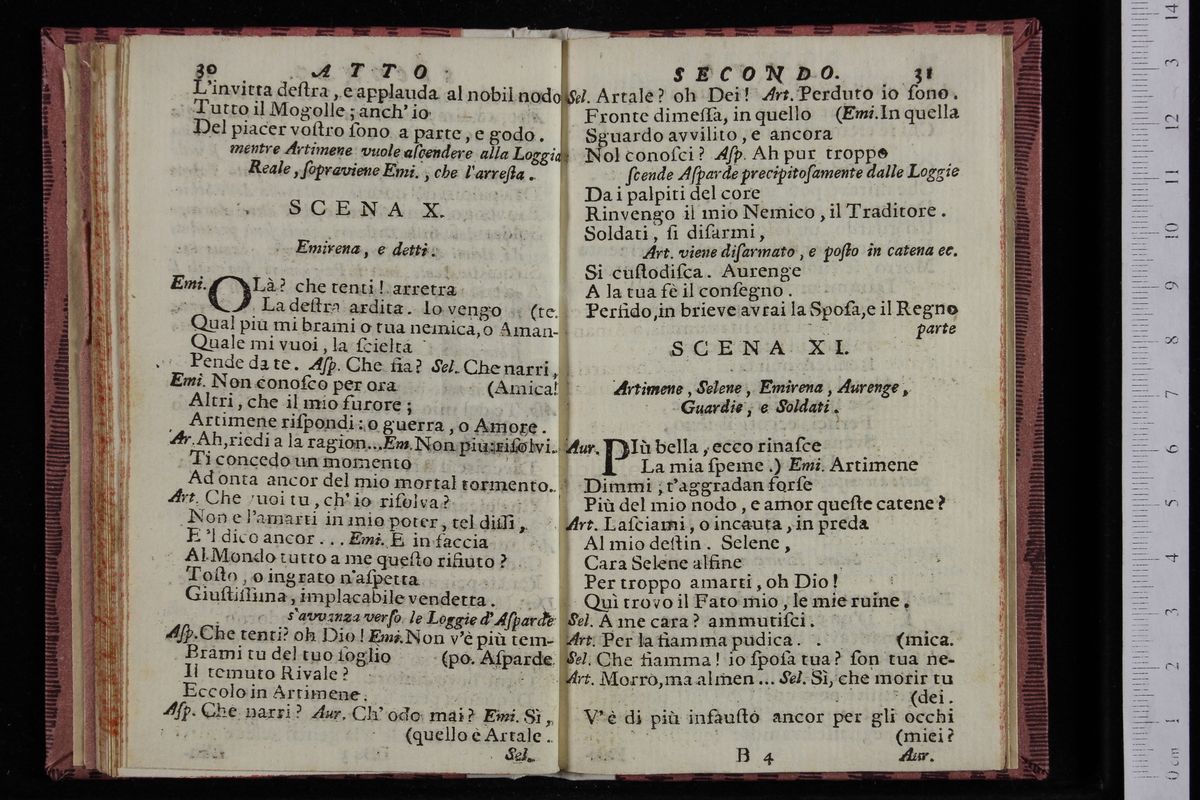 30 ATTO
L'invitta deſtra, e applauda al nobil nodo
Tutto il Mogolle; anch' io
Del piacer voſtro ſono a parte, e godo.
mentre Artimene vuole aſcendere alla Loggia
Reale, ſopraviene Emi., che l'arreſta.
SCENA X.
Emirena, e detti.
Emi. OLà? che tenti! arretra
La deſtra ardita. Io vengo (te.
Qual più mi brami o tua nemica, o Aman-
Quale mi vuoi, la ſcielta
Pende da te. Aſp. Che fia? Sel. Che narri,
Emi. Non conoſco per ora (Amica!
Altri, che il mio furore;
Artimene riſpondi: o guerra, o Amore.
Ar. Ah, riedi a la ragion... Em. Non più: riſolvi.
Ti concedo un momento
Ad onta ancor del mio mortal tormento.
Art. Che vuoi tu, ch' io riſolva?
Non e l'amarti in mio poter, tel diſſi,
E 'l dico ancor... Emi. E in faccia
Al Mondo tutto a me queſto rifiuto?
Toſto, o ingrato n'aſpetta
Giuſtiſſima, implacabile vendetta.
s'avvanza verſo le Loggie d'Aſparde
Aſp. Che tenti? oh Dio! Emi. Non v'è più tem-
Brami tu del tuo ſoglio (po. Aſparde
Il temuto Rivale?
Eccolo in Artimene.
Aſp. Che narri? Aur. Ch' odo mai? Emi. Sì,
(quello è Artale.
Sel.
SECONDO. 31
Sel. Artale? oh Dei! Art. Perduto io ſono.
Fronte dimeſſa, in quello (Emi. In quella
Sguardo avvilito, e ancora
Nol conoſci? Aſp. Ah pur troppo
ſcende Aſparde precipitoſamente dalle Loggie
Da i palpiti del core
Rinvengo il mio Nemico, il Traditore.
Soldati, ſi diſarmi,
Art. viene diſarmato, e poſto in catena ec.
Si cuſtodiſca. Aurenge
A la tua fè il conſegno.
Perfido, in brieve avrai la Spoſa, e il Regno
parte
SCENA XI.
Artimene, Selene, Emirena, Aurenge,
Guardie, e Soldati.
Aur. PIù bella, ecco rinaſce
La mia ſpeme.) Emi. Artimene
Dimmi, t'aggradan forſe
Più del mio nodo, e amor queſte catene?
Art. Laſciami, o incauta, in preda
Al mio deſtin. Selene,
Cara Selene alfine
Per troppo amarti, oh Dio!
Quì trovo il Fato mio, le mie ruine.
Sel. A me cara? ammutiſci.
Art. Per la fiamma pudica. . (mica.
Sel. Che fiamma! io ſpoſa tua? ſon tua ne-
Art. Morrò, ma almen... Sel. Sì, che morir tu
(dei.
V'è di più infauſto ancor per gli occhi
(miei?
B 4 Aur.
0 cm 1 2 3 4 5 6 7 8 9 10 11 12 3 14